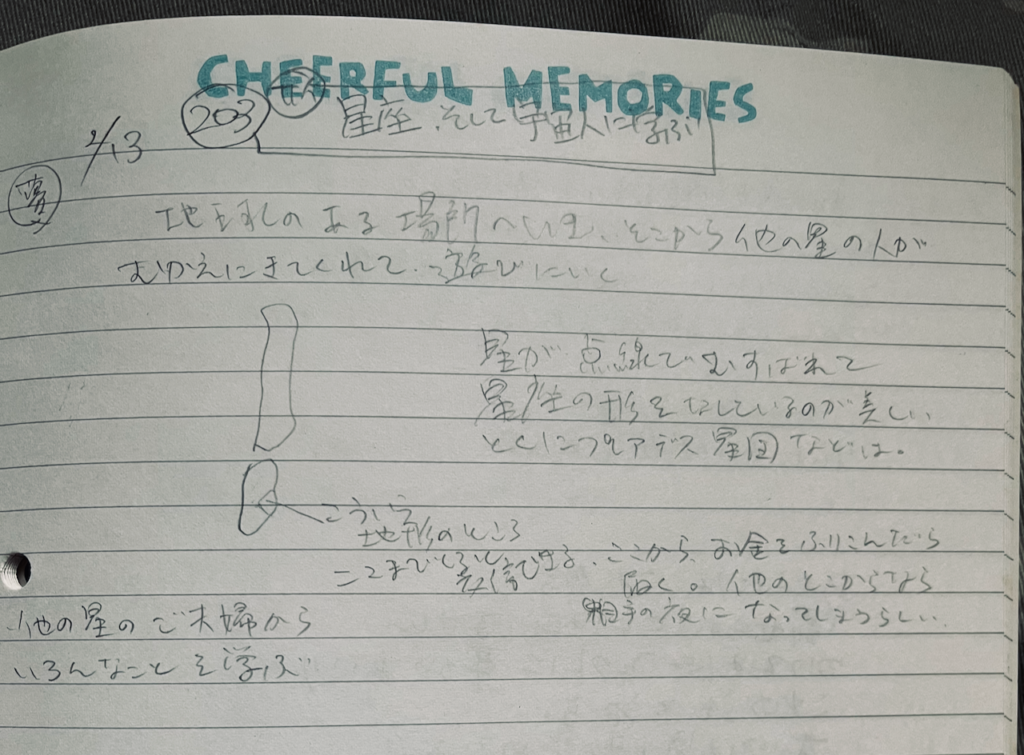 CHEERFUL MEMORIES
203
星座、そして宇宙人に学ぶ
2/13
夢
地球のある場所へいき、そこから他の星の人が
むかえにきてくれて、遊びにいく
星が点線でむすばれて
星座の形をなしているのが美しい
とくにプレアデス星団などは。
こういう
地形のところ
ここまでくると交信できる、ここから、お金をふりこんだら
届く。他のとこからなら
相手の夜になってしまうらしい
他の星のご夫婦から
いろんなことを学ぶ